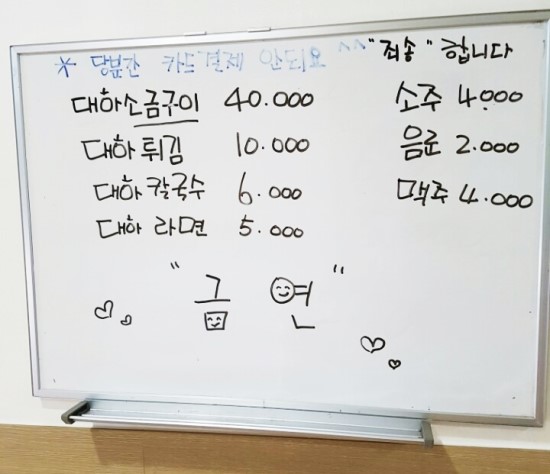 * 당분간 카드결제 안되요 ^^ "죄송" 합니다
대하소금구이 40.000
대하 튀김 10.000
대하 칼국수 6.000
대하 라면 5.000
소주 4.000
음료 2.000
맥주 4.000
" 금 연 "